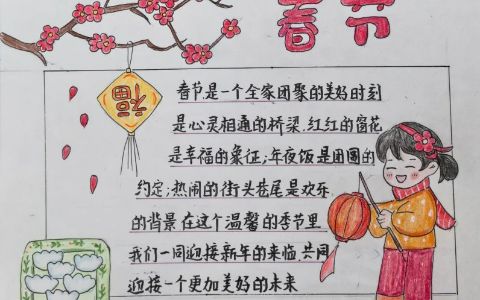 春节
福
春节是一个全家团聚的美好时刻
是心灵相通的桥梁.红红的窗花
是幸福的象征;年夜饭是团圆的
约定;热闹的街头巷尾是欢乐
的背景在这个温馨的季节里
我们一同迎接新年的来临,共同
迎接一个更加美好的未来